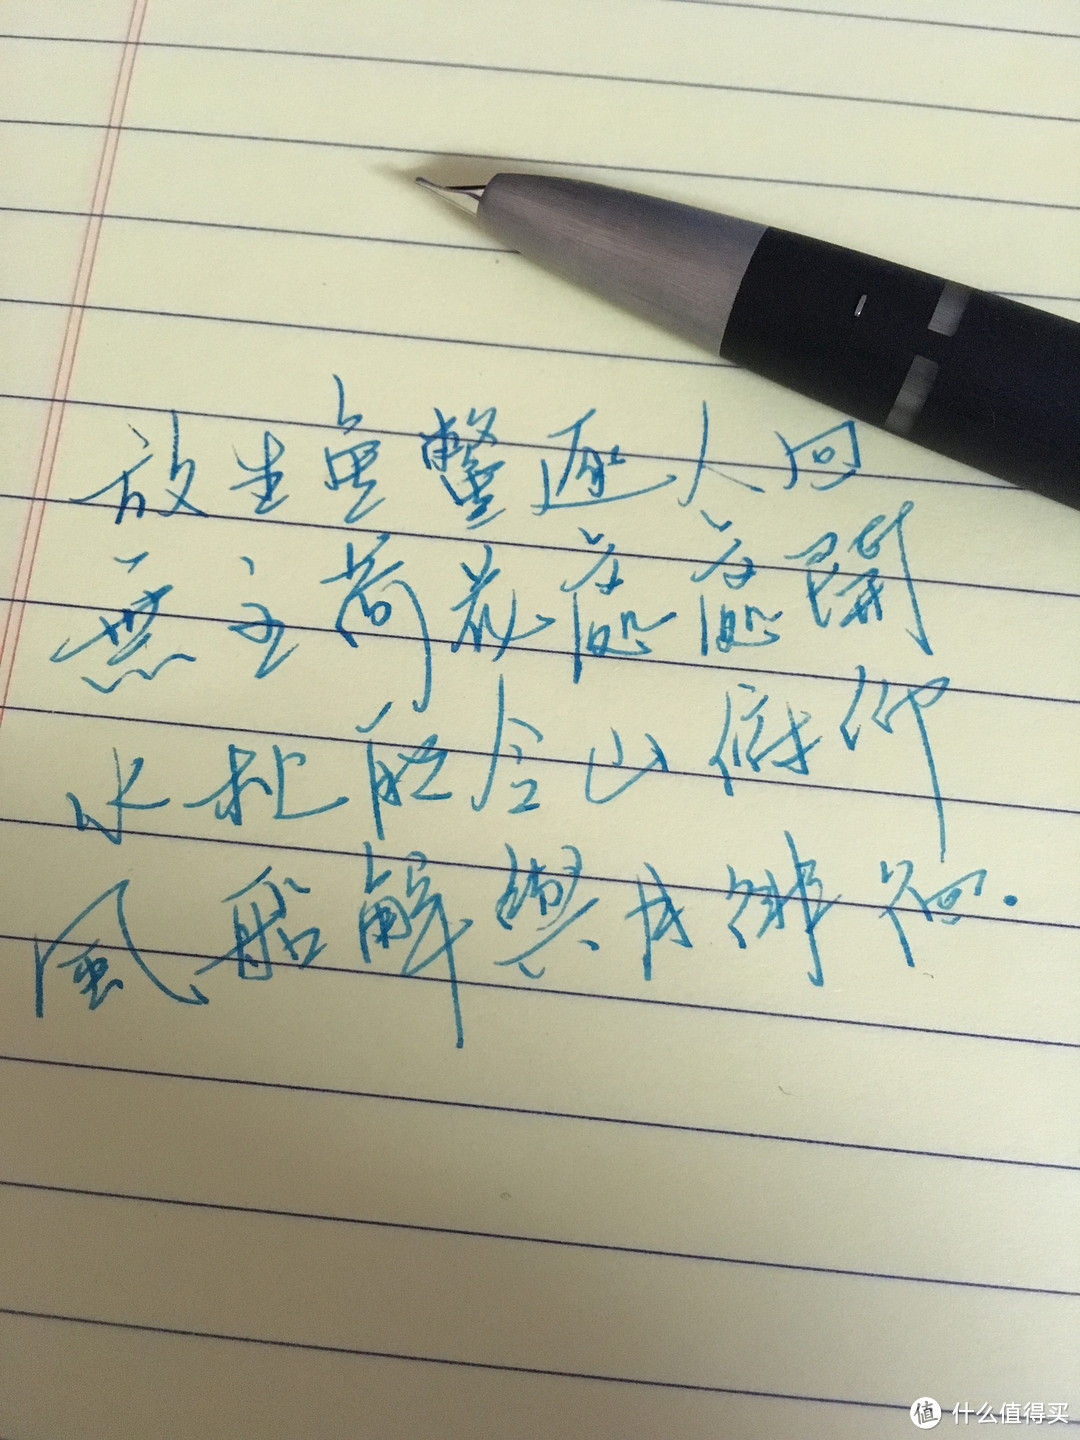 放生魚鱉逐人回
無主荷花處處開
水枕能令山俯仰
風船解與月徘徊.
值 什么值得买